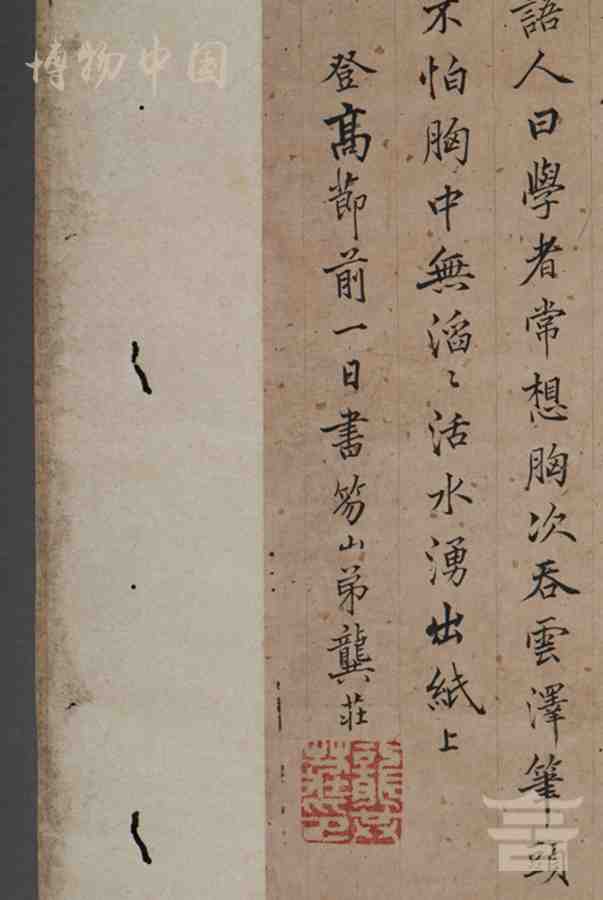 語人曰學者常想胸次吞雲澤筆頭
不怕胸中無滔〻活水湧出紙上
登高節前一日書笏山弟龔莊
博物中国